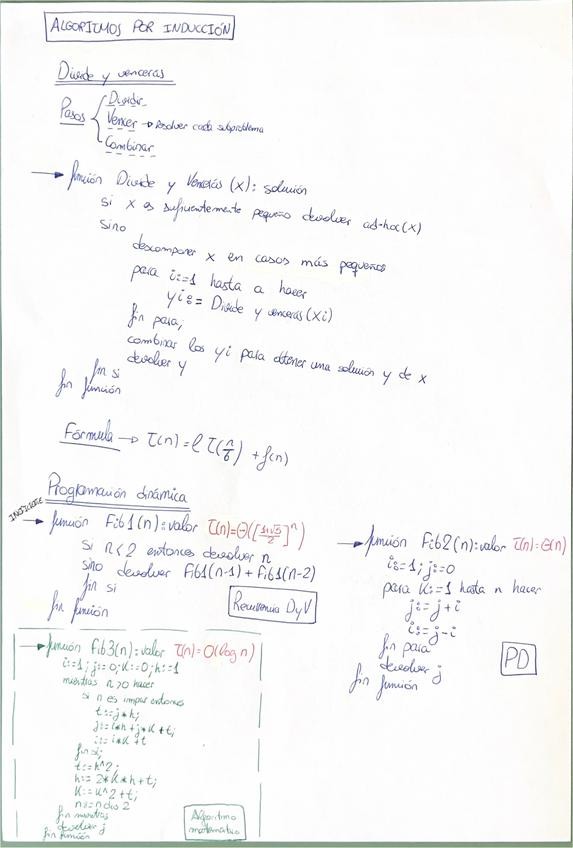 ALGORITMOS POR INDUCCIÓN
Divide y vencerás
Pasos
Dividir
Vencer → Resolver cada subproblema
Combinar
→ función Divide y Vencerás (x): solución
si x es suficientemente pequeño devolver ad-hoc(x)
sino
descomponer x en casos más pequeños
para i:=1 hasta a hacer
yi:= Divide y vencerás(xi)
fin para;
combinar los yi para obtener una solución y de x
devolver y
fin si
fin función
Fórmula → T(n) = l T(n/b) + f(n)
Programación dinámica
INEFICIENTE
→ función Fib1(n): valor T(n)=Θ([1+√5/2]^n)
si n<2 entonces devolver n
sino devolver Fib1(n-1) + Fib1(n-2)
fin si
fin función
Recurrencia DyV
→ función Fib2(n): valor T(n)=Θ(n)
i:=1; j:=0
para K:=1 hasta n hacer
j:= j+i
i:= j-i
fin para
devolver j
fin función
PD
→ función Fib3(n): valor T(n)=O(log n)
i:=1; j:=0; K:=0; h:=1
mientras n>0 hacer
si n es impar entonces
t:=j*h;
j:=i*h+j*K+t;
i:=i*K+t
fin si;
t:=h^2;
h:= 2*K*h+t;
K:=K^2+t;
n:=n div 2
fin mientras
devolver j
fin función
Algoritmo
matemático